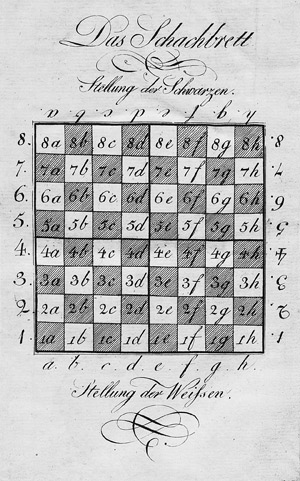 Das Schachbrett
Stellung der Schwarzen.
a b c d e f g h
8. 8a 8b 8c 8d 8e 8f 8g 8h 8.
7. 7a 7b 7c 7d 7e 7f 7g 7h 7.
6. 6a 6b 6c 6d 6e 6f 6g 6h 6.
5. 5a 5b 5c 5d 5e 5f 5g 5h 5.
4. 4a 4b 4c 4d 4e 4f 4g 4h 4.
3. 3a 3b 3c 3d 3e 3f 3g 3h 3.
2. 2a 2b 2c 2d 2e 2f 2g 2h 2.
1. 1a 1b 1c 1d 1e 1f 1g 1h 1.
a. b. c. d. e. f. g. h.
Stellung der Weißen.